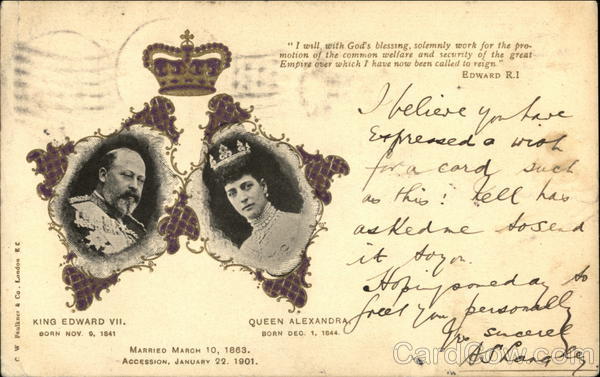 "I will, with God's blessing, solemnly work for the pro-
motion of the common welfare and security of the great
Empire over which I have now been called to reign"
EDWARD R.I
I believe you have
expressed a wish
for a card such
as this! Nell has
asked me to send
it to you.
Hoping some day to
greet you personally
sincerely
C W Faulkner & Co., London E C
KING EDWARD VII.
BORN NOV. 9, 1841
QUEEN ALEXANDRA
BORN DEC. 1, 1844.
MARRIED MARCH 10, 1863.
ACCESSION, JANUARY 22. 1901.
CardCow.com